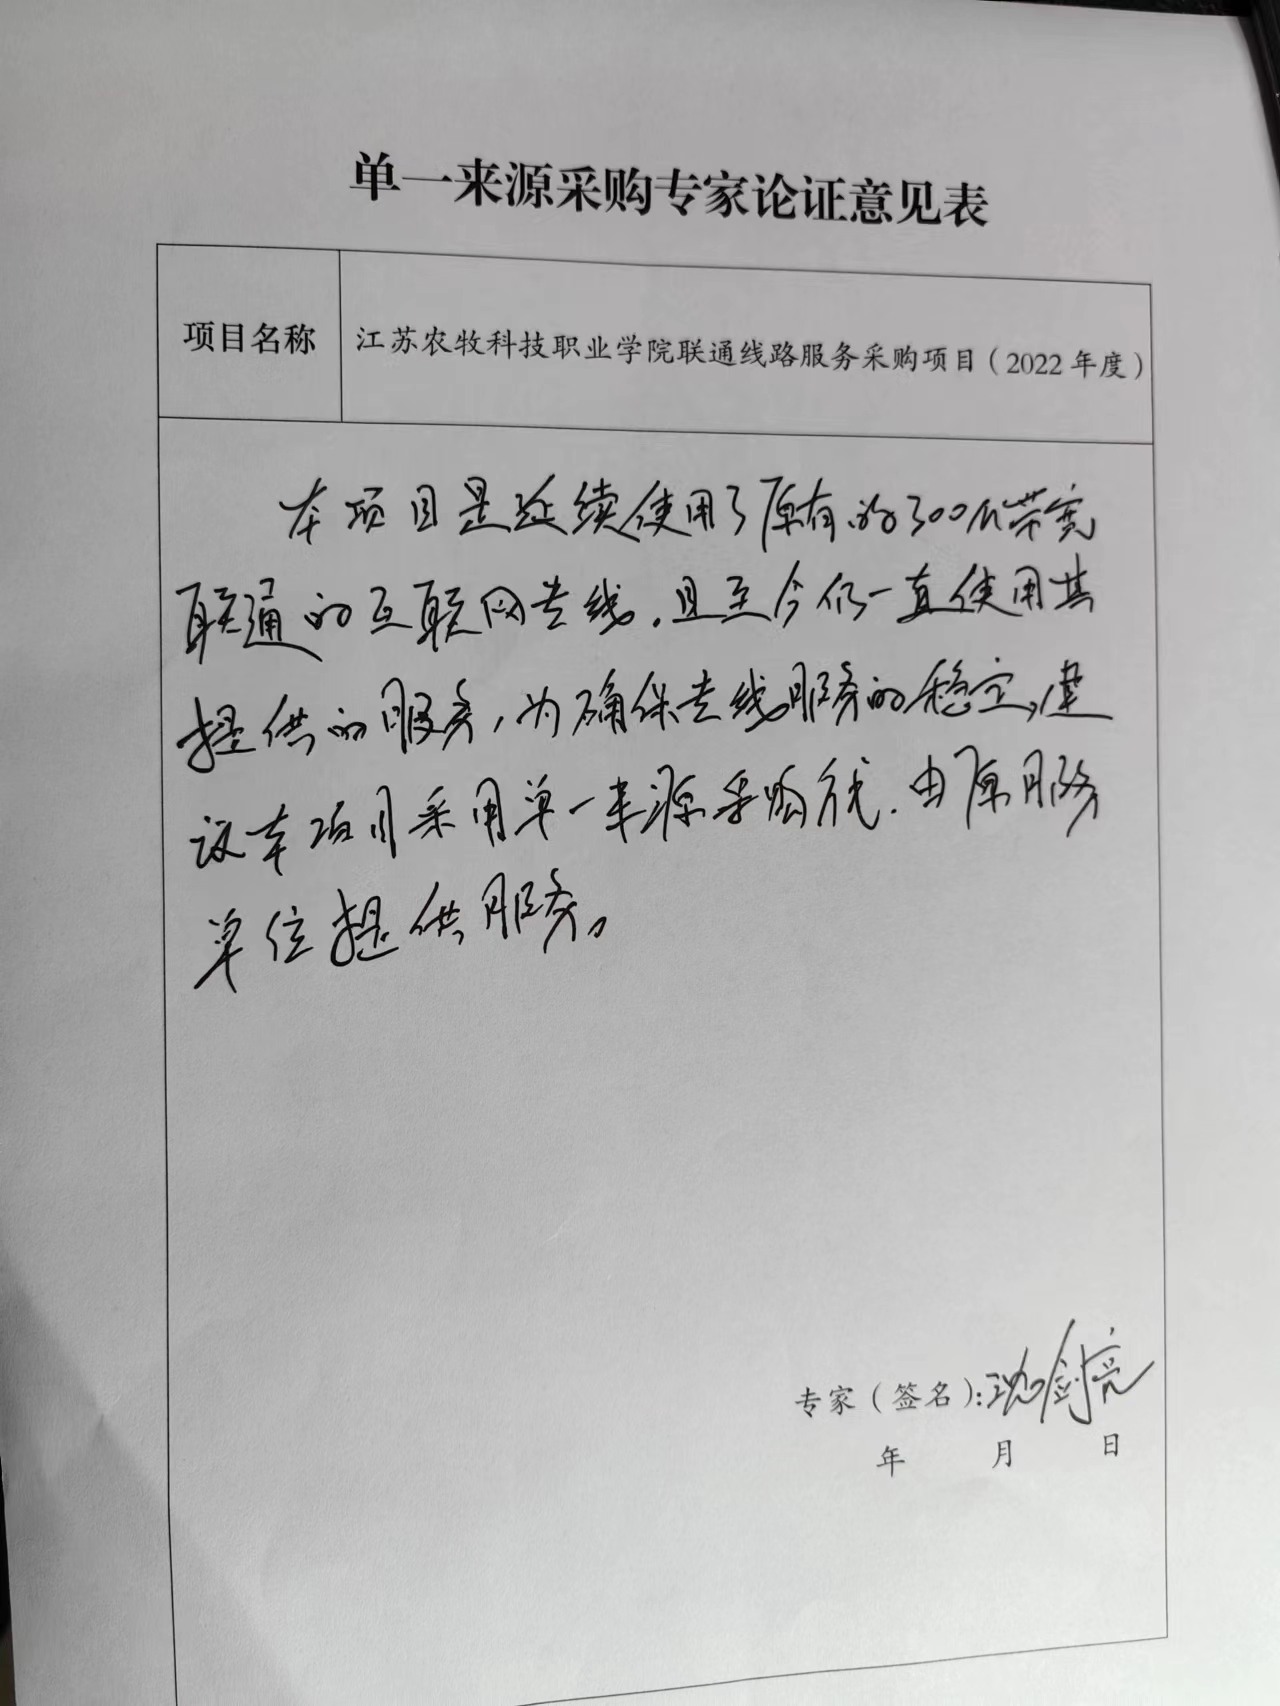 单一来源采购专家论证意见表
项目名称
江苏农牧科技职业学院联通线路服务采购项目（2022年度）
本项目是延续使用了原有的300M带宽
联通的互联网专线，且至今仍一直使用其
提供的服务，为确保专线服务的稳定，建
议本项目采用单一来源采购方式，由原服务
单位提供服务。
专家（签名）：沈剑亮
年 月 日